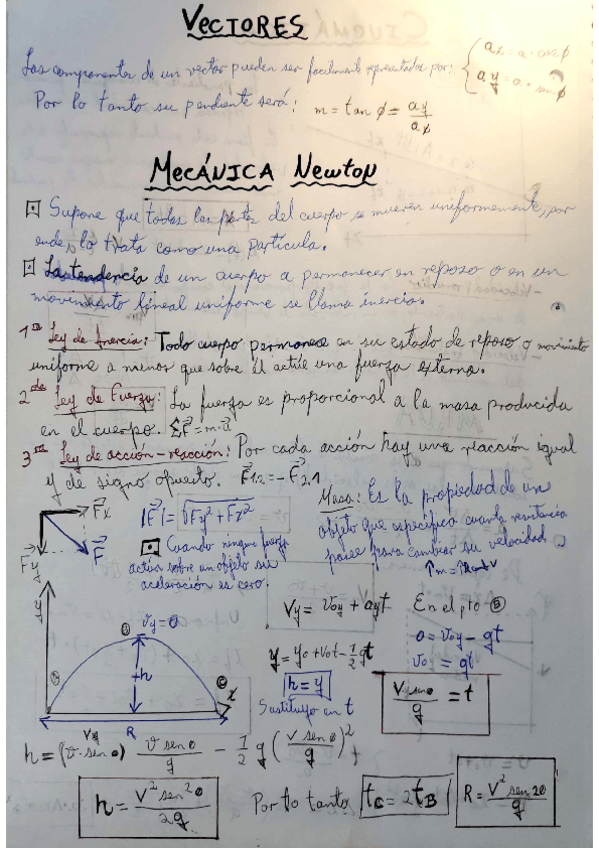 VECTORES
Las componentes de un vector pueden ser facilmente representadas por: { ax = a · cos φ
ay = a · sen φ
Por lo tanto su pendiente será: m = tan φ = ay/ax
MECÁNICA Newton
Supone que todas las partes del cuerpo se mueven uniformemente, por
ende, lo trata como una partícula.
La tendencia de un cuerpo a permanecer en reposo o en un
movimiento lineal uniforme se llama inercia.
1ra Ley de Inercia: Todo cuerpo permanece en su estado de reposo o movimiento
uniforme a menor que sobre él actúe una fuerza externa.
2da Ley de Fuerza: La fuerza es proporcional a la masa producida
en el cuerpo. ΣF = m·a
3ra Ley de acción-reacción: Por cada acción hay una reacción igual
y de signo opuesto. F1,2 = -F2,1
Fx
Fy
F
|F| = √Fy² + Fx²
Cuando ninguna fuerza
actúa sobre un objeto su
aceleración es cero.
Masa: Es la propiedad de un
objeto que especifica cuanta resistencia
posee para cambiar su velocidad
↑m =
Vy = Voy + ayt
En el pto B
0 = Voy - gt
Voy = gt
y = yo + vot - 1/2 gt
h = y
Sustituyo en t
V senθ/g = t
y
B
Vy = 0
h
C
t
R
h = (v · senθ) v senθ/g - 1/2 g (v senθ/g)²
h = V² sen²θ/2g
Por lo tanto tC = 2tB
R = V² sen 2θ/g